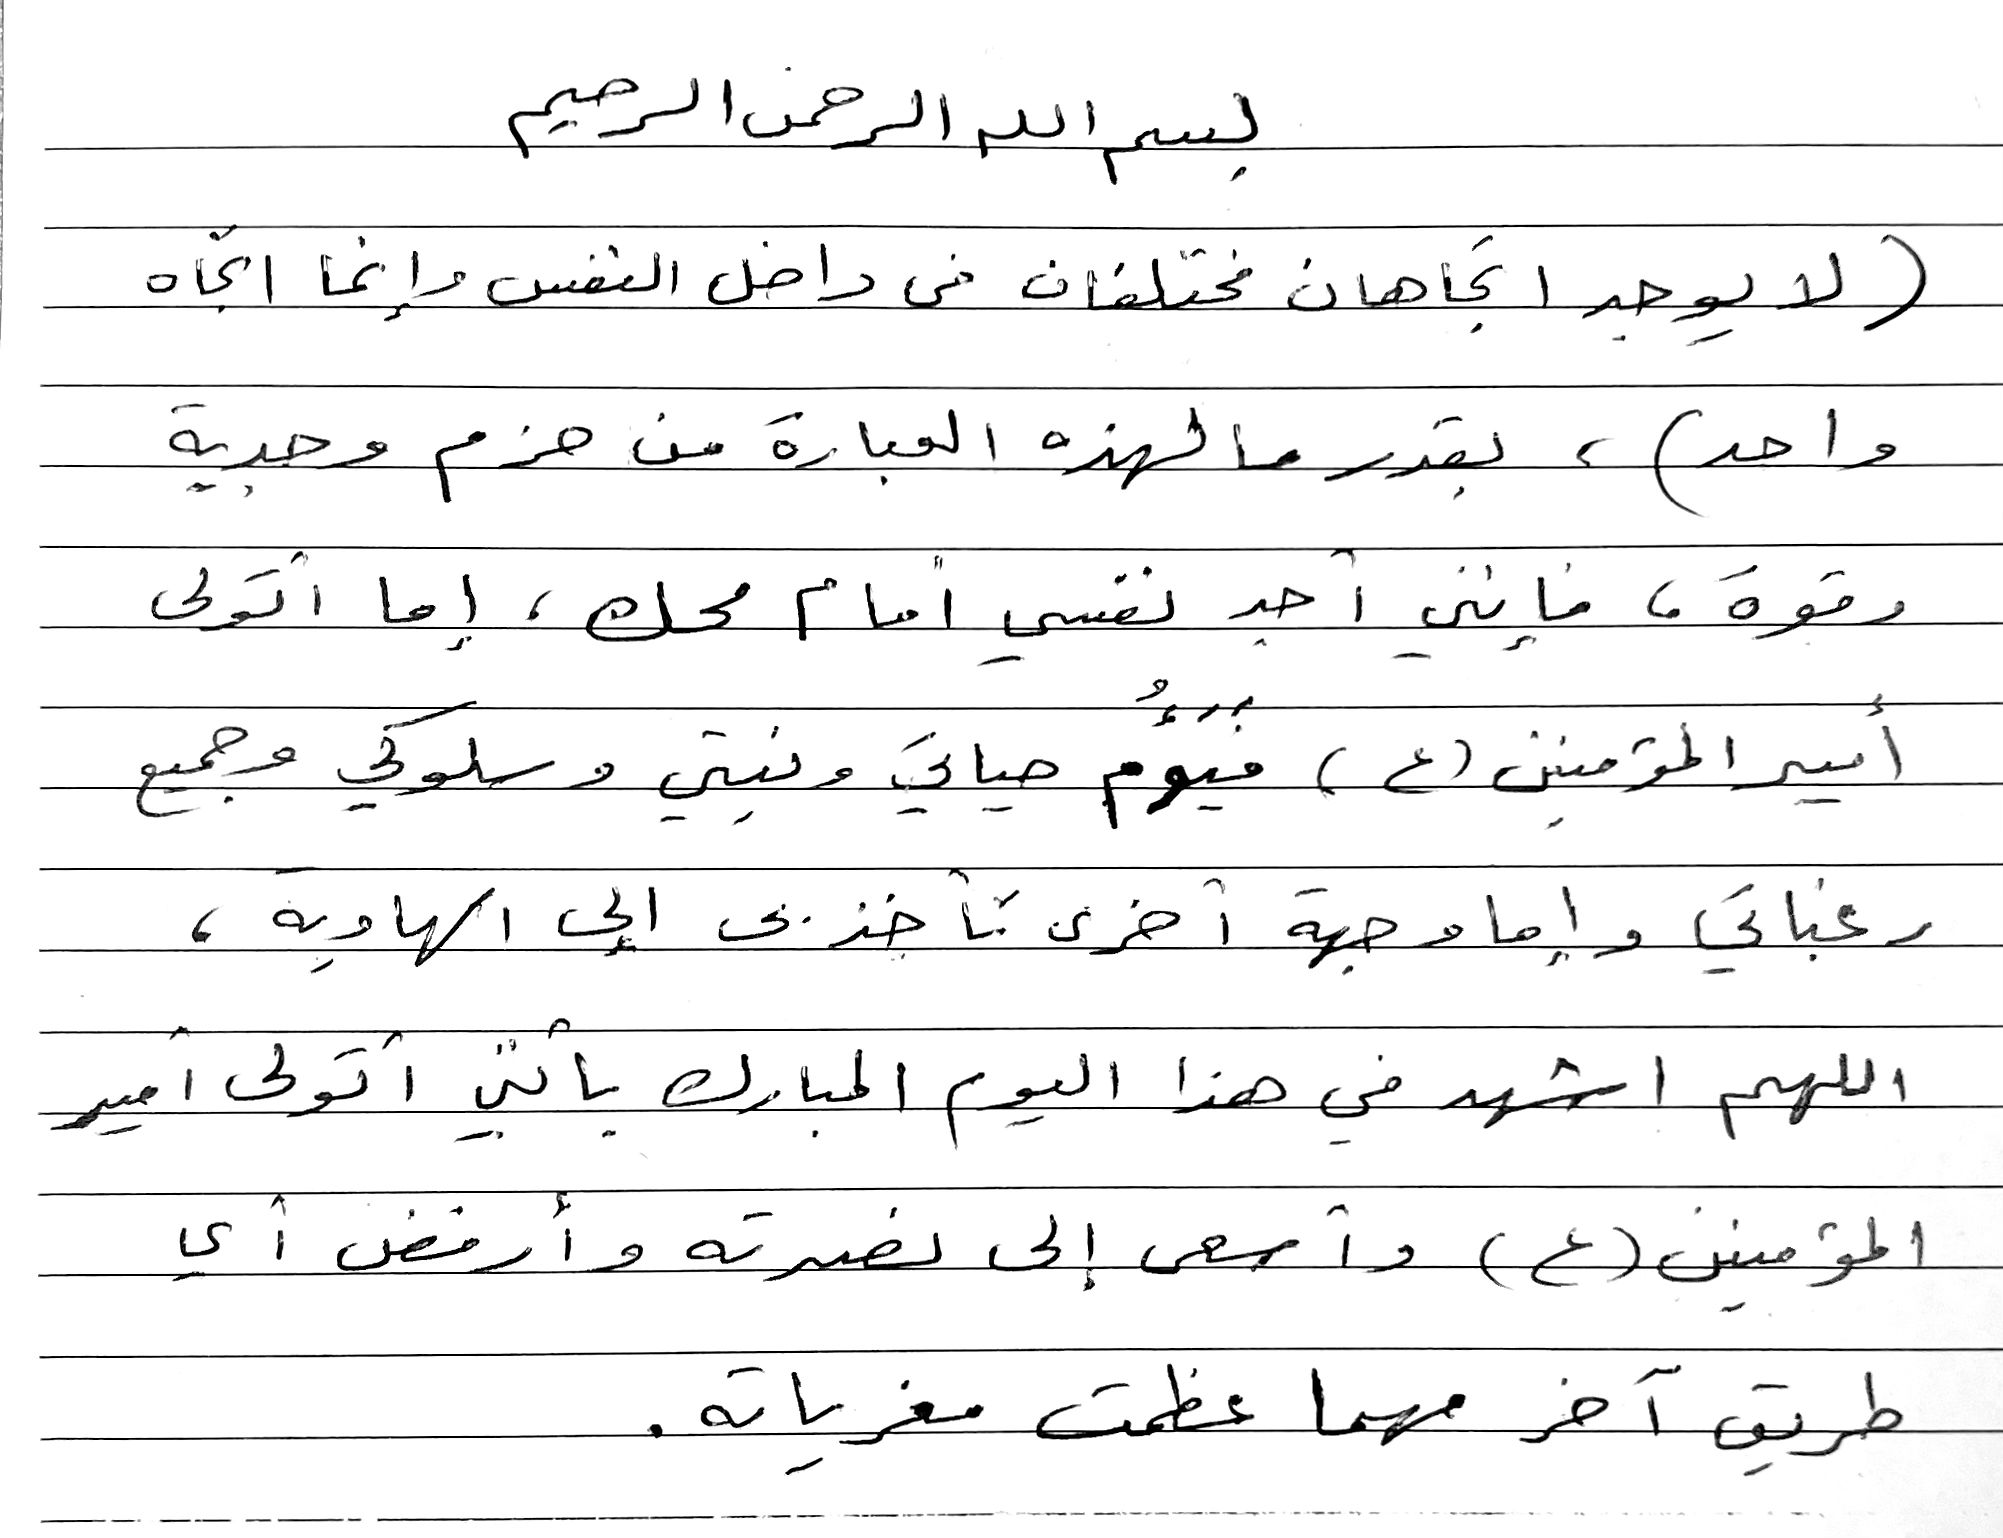 بسم الله الرحمن الرحيم
(لا يوجد اتجاهان مختلفان في داخل النفس وإنما اتّجاه
واحد)، بقدر ما لهذه العبارة من حزم وجدية
وقوة، فإنني أجد نفسي أمام محك، إما أتولى
أمير المؤمنين (ع) فيَؤُم حياتي ونيتي وسلوكي وجميع
رغباتي وإما وجهة أخرى تأخذني إلى الهاوية،
اللهم اشهد في هذا اليوم المبارك بأنّني أتولى أمير
المؤمنين (ع) وأسعى إلى نصرته وأرفض أي
طريق آخر مهما عظمت مغرياته.